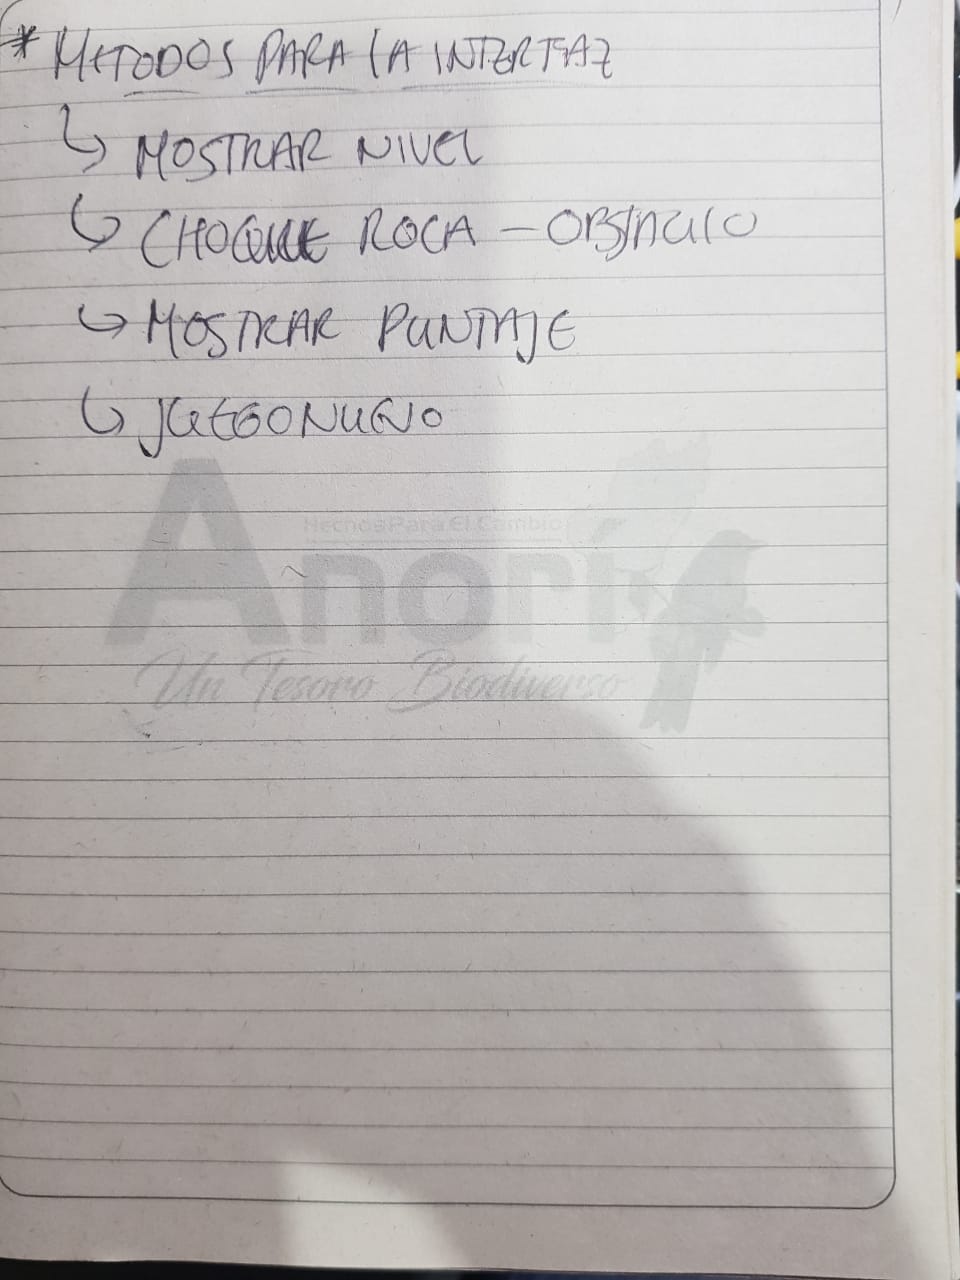 * METODOS PARA LA INTERFAZ
↳ MOSTRAR NIVEL
↳ CHOQUE ROCA - OBSTACULO
↳ MOSTRAR PUNTAJE
↳ JUEGONUEVO
Hechos Para El Cambio
Anorí
Un Tesoro Biodiverso